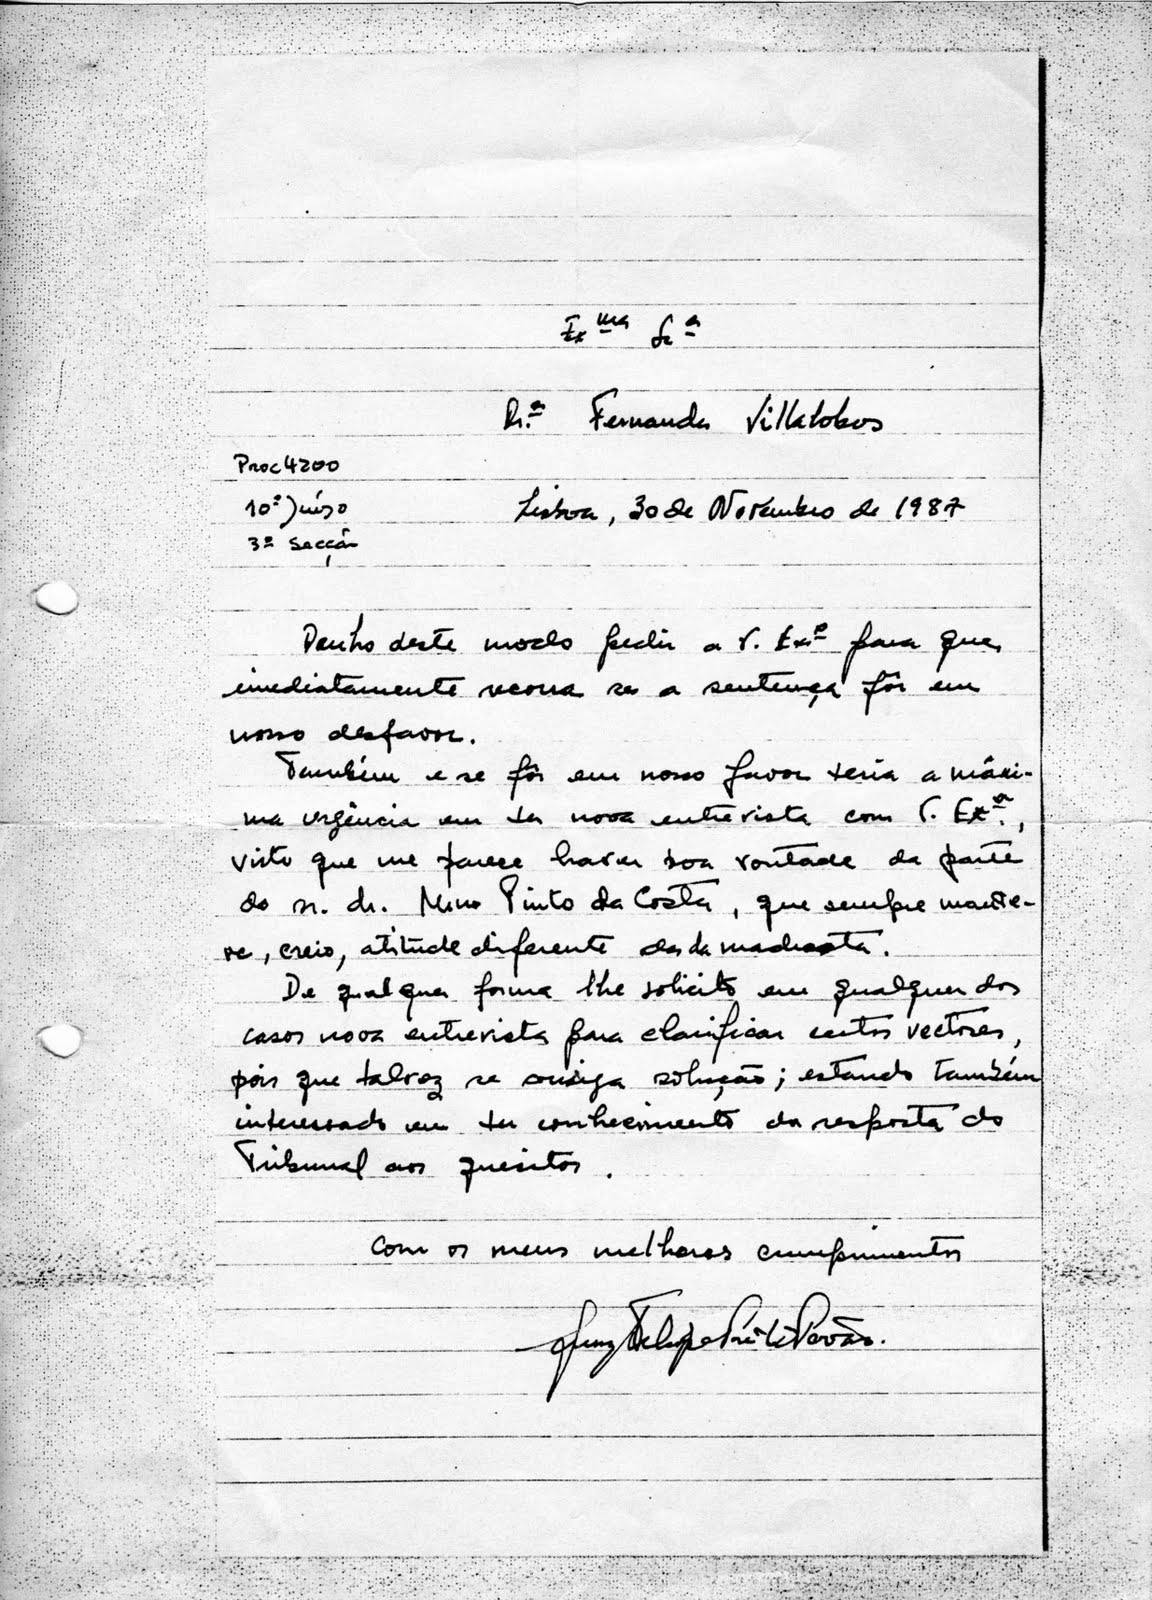 Ex.ma Sr.a
Dr.a Fernanda Villalobos
Proc 4200
10º Juízo
3ª Secção
Lisboa, 30 de Novembro de 1987
Venho deste modo pedir a V. Ex.a para que
imediatamente recorra se a sentença fôr em
nosso desfavor.
Também e se fôr em nosso favor teria a máxi-
ma urgência em ter nova entrevista com V. Ex.a,
visto que me parece haver boa vontade da parte
do sr. dr. Nuno Pinto da Costa, que sempre mante-
ve, creio, atitude diferente da da madrasta.
De qualquer forma lhe solicito em qualquer dos
casos nova entrevista para clarificar certos vectores,
pois que talvez se consiga solução; estando também
interessado em ter conhecimento da resposta do
Tribunal aos quesitos.
Com os meus melhores cumprimentos